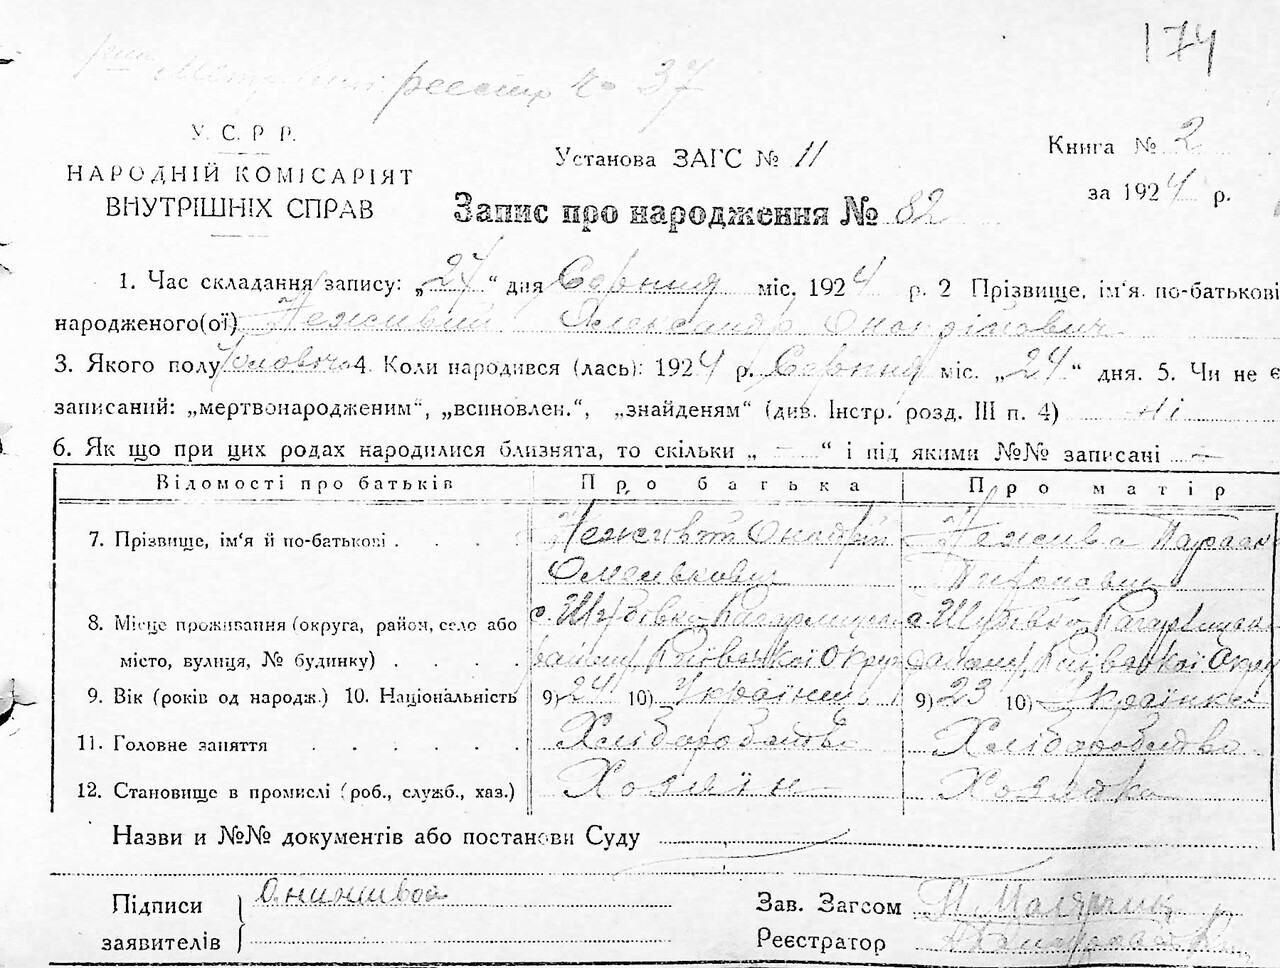 174
реестр № 37
У. С. Р. Р.
НАРОДНІЙ КОМІСАРІЯТ
ВНУТРІШНІХ СПРАВ
Установа ЗАГС № 11
Книга № 2
за 1924 р.
Запис про народження № 82
1. Час складання запису: „27“ дня Серпня міс. 1924 р. 2 Прізвище, ім‘я. по-батькові
народженого(ої) Неживий Александр Онопрійович
3. Якого полу Чоловічо 4. Коли народився (лась): 1924 р. Серпня міс. „24“ дня. 5. Чи не є
записаний: „мертвонародженим“, „всиновлен.“, „знайденям“ (див. Інстр. розд. III п. 4) ні
6. Як що при цих родах народилися близнята, то скільки „ — “ і під якими №№ записані —
Відомості про батьків Про батька Про матір
7. Прізвище, ім‘я й по-батькові . . . . Неживий Онопрій Нежива Параск
Омелькович
8. Місце проживання (округа, район, село або с. Шубівка Кагарлицьк с. Шубівка Кагарлицьк
місто, вулиця, № будинку) . . . . району Київської Округ району Київської Окру
9. Вік (років од народж.) 10. Національність 9) 24 10) Українець 9) 23 10) Українка
11. Головне заняття . . . . . Хліборобство Хліборобство
12. Становище в промислі (роб., служб., хаз.) Хозяїн Хозяйка
Назви и №№ документів або постанови Суду
Підписи
заявителів
Зав. Загсом М. Малярчик
Реєстратор